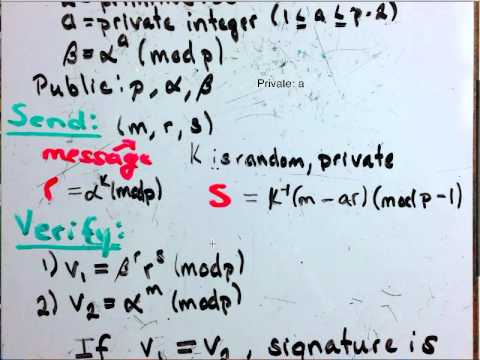 a = private integer (1 ≤ a ≤ p-2)
β = α^a (mod p)
Public: p, α, β
Private: a
Send: (m, r, s)
message K is random, private
r = α^k (mod p) S = K^-1 (m - ar) (mod p-1)
Verify:
1) V₁ = β^r r^s (mod p)
2) V₂ = α^m (mod p)
If V₁ = V₂, signature is